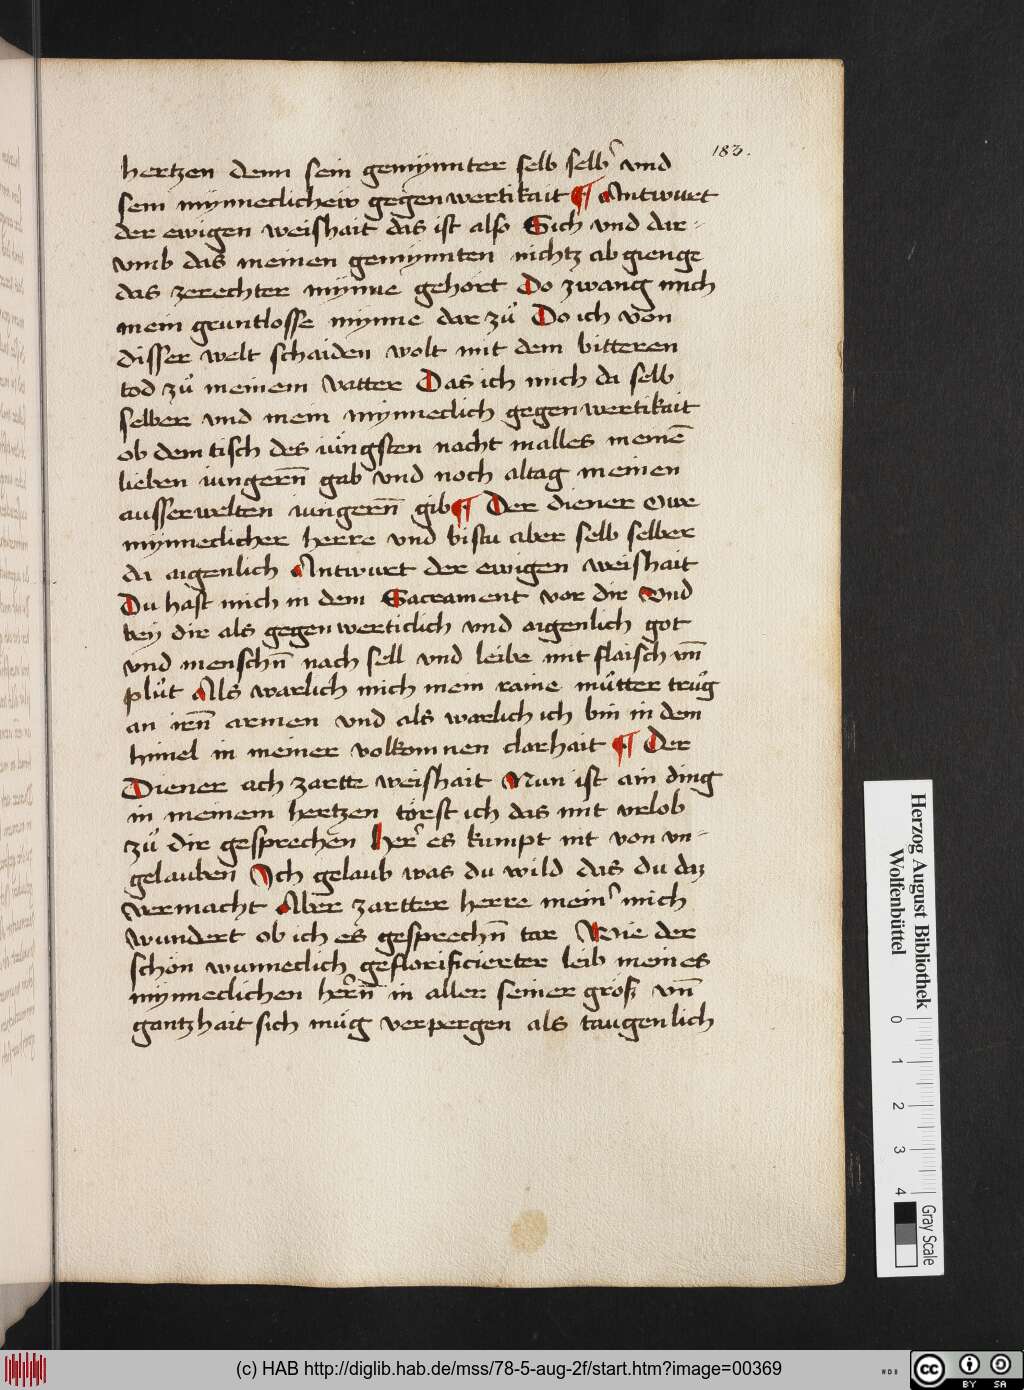 183.
hertzen denn sein gemynnter selb selb' vnd
sem mynneclicheiv gegenwertikait ¶ Antwurt
der ewigen weishait das ist also Sich vnd dar-
vmb das meinen gemynnten nichtz ab gienge
das zerechter mynne gehört Do zwang mich
mein gruntlosse mynne dar zů Do ich von
disser welt schaiden wolt mit dem bitteren
tod zů meinem vatter Das ich mich da selb
selber vnd mein mynneclich gegenwertikait
ob dem tisch des iüngsten nacht malles meinē
lieben iungern̄ gab vnd noch altag meinen
ausserwelten iungern̄ gib ¶ Der diener Owe
mynneclicher herre vnd bistu aber selb selber
da aigenlich Antwurt der ewigen weishait
Du hast mich in dem Sacrament vor dir Vnd
bey dir als gegenwerticlich vnd aigenlich got
vnd menschn̄ nach sell vnd leibe mit flaisch vn̄
plůt Als warlich mich mein raine můtter trůg
an irn̄ armen vnd als warlich ich bin in dem
himel in meiner volkomnen clarhait ¶ Der
Diener ach zartte weishait Nun ist ain ding
in meinem hertzen törst ich das mit vrlob
zů dir gesprechen Her' es kumpt nit von vn-
gelauben Ich gelaub was du wild das du daz
vermacht Aber zartter herre mein' mich
wundert ob ich es gesprechn̄ tar Wie der
schön wunneclich geflorificierter leib meines
mynneclichen her'n̄ in aller seiner grösz vn̄
gantzhait sich můg verpergen als taugenlich
Herzog August Bibliothek
Wolfenbüttel
0 1 2 3 4
Gray Scale
(c) HAB http://diglib.hab.de/mss/78-5-aug-2f/start.htm?image=00369
WDB
CC BY SA